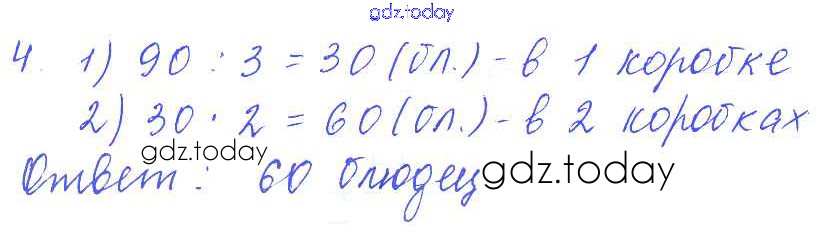 gdz.today
4. 1) 90 : 3 = 30 (бл.) - в 1 коробке
2) 30 · 2 = 60 (бл.) - в 2 коробках
gdz.today
Ответ: 60 блюдец gdz.today